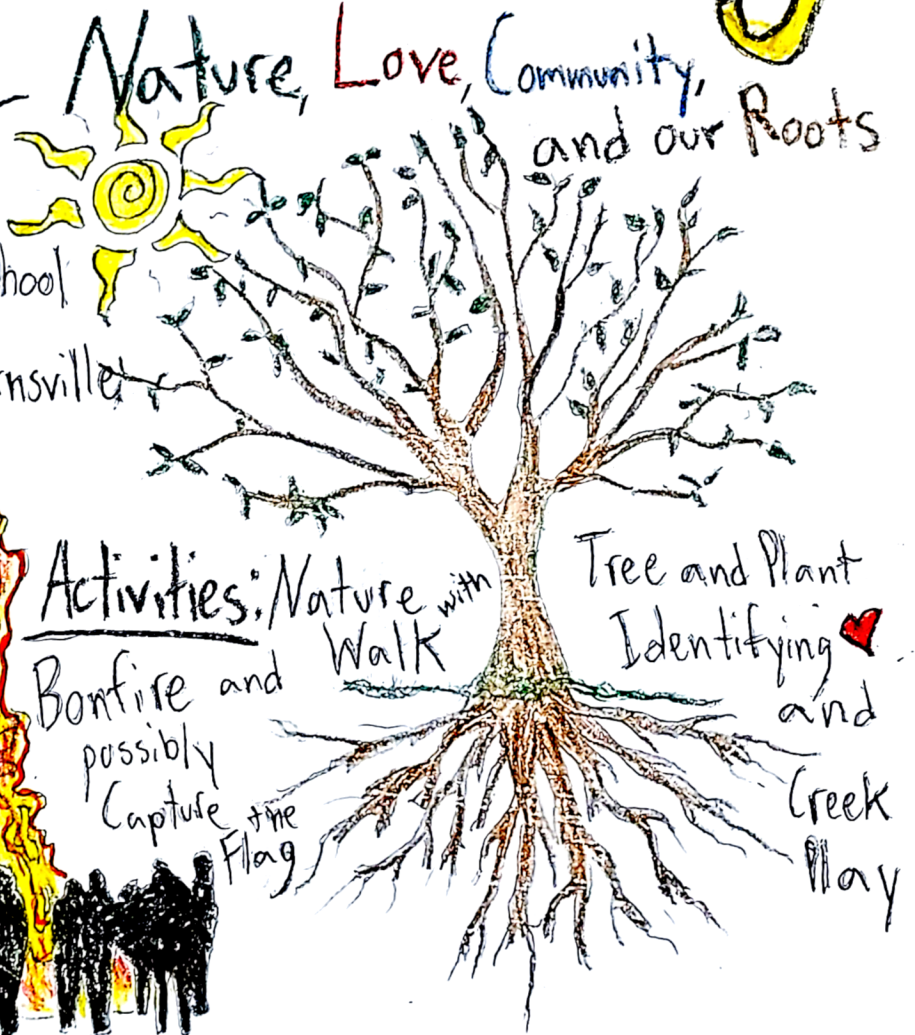 Nature, Love, Community,
and our Roots
hool
nsville
Activities: Nature Walk with
Tree and Plant
Identifying
and
Creek
Play
Bonfire and
possibly
Capture the
Flag